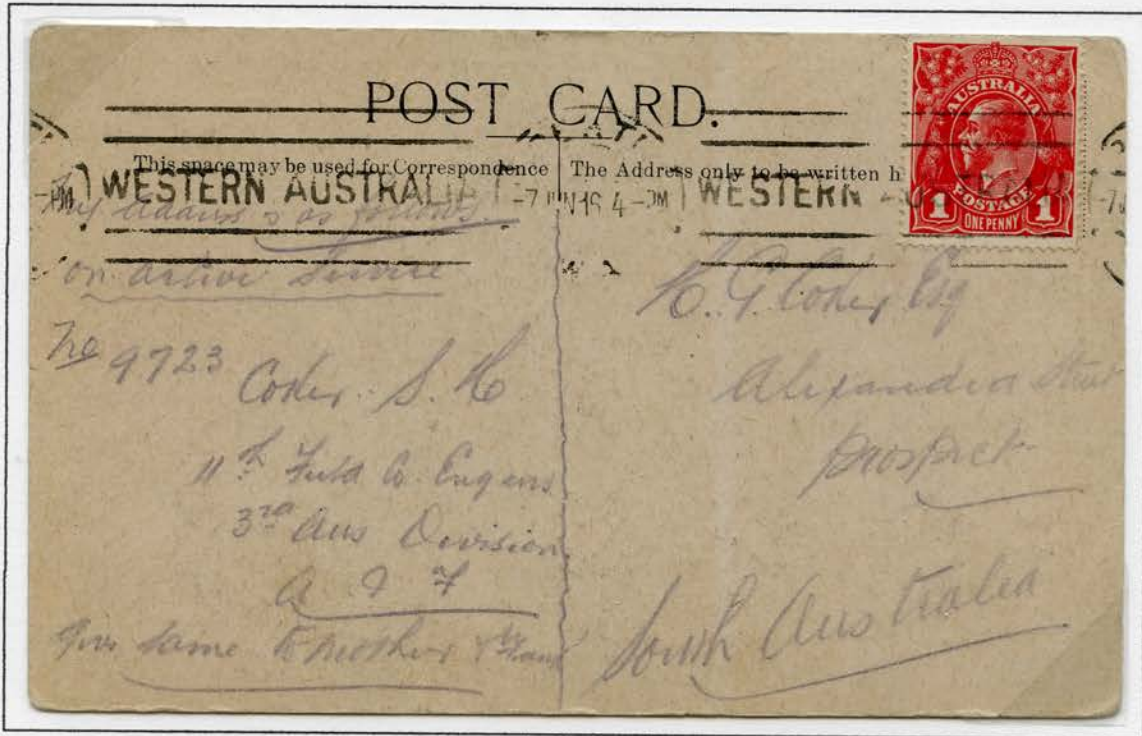 POST CARD.
This space may be used for Correspondence
The Address only to be written h
WESTERN AUSTRALIA
-7 JUN 16 4-PM
WESTERN
AUSTRALIA
POSTAGE
1 ONE PENNY 1
My address is as follows
on active Service
No 9723
S. H
11th Field Co. Engens
3rd Aus Division
A I F
Give same to mother
H. G. Esq
Alexandra Street
Prospect
South Australia